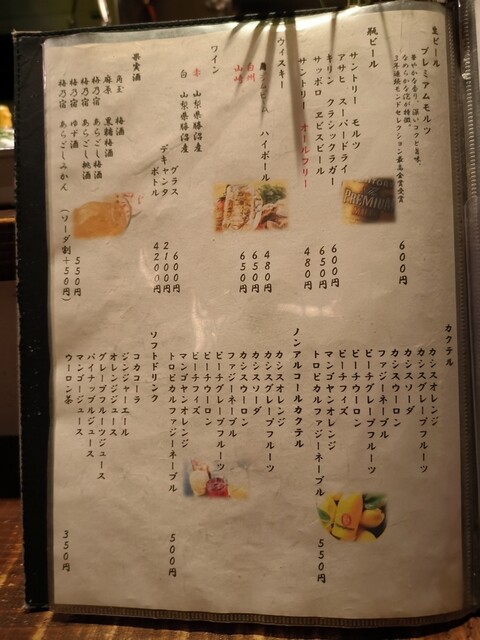 生ビール
プレミアムモルツ
華やかな香り、深いコクと旨味、
なめらかな泡が特徴。
3年連続モンドセレクション最高金賞受賞
600円
瓶ビール
サントリー モルツ
アサヒ スーパードライ
キリン クラシックラガー
サッポロ ヱビスビール
サントリー オールフリー
600円
650円
480円
ウィスキー
ハイボール
白州
山崎
480円
650円
650円
ワイン
赤 山梨県勝沼産
白 山梨県勝沼産
グラス
デキャンタ
ボトル
600円
2100円
4200円
果実酒
角玉 梅酒
麻原 黒糖梅酒
梅乃宿 あらごし梅酒
梅乃宿 ゆず酒
梅乃宿 あらごし桃酒
梅乃宿 あらごしみかん
550円
(ソーダ割+50円)
カクテル
カシスオレンジ
カシスグレープフルーツ
カシスソーダ
カシスウーロン
ファジーネーブル
ピーチグレープフルーツ
ピーチウーロン
ピーチフィズ
マンゴヤンオレンジ
トロピカルファジーネーブル
550円
ノンアルコールカクテル
カシスオレンジ
カシスグレープフルーツ
カシスソーダ
カシスウーロン
ファジーネーブル
ピーチグレープフルーツ
ピーチウーロン
ピーチフィズ
マンゴヤンオレンジ
トロピカルファジーネーブル
500円
ソフトドリンク
コカコーラ
ジンジャーエール
オレンジジュース
グレープフルーツジュース
パイナップルジュース
マンゴージュース
ウーロン茶
350円